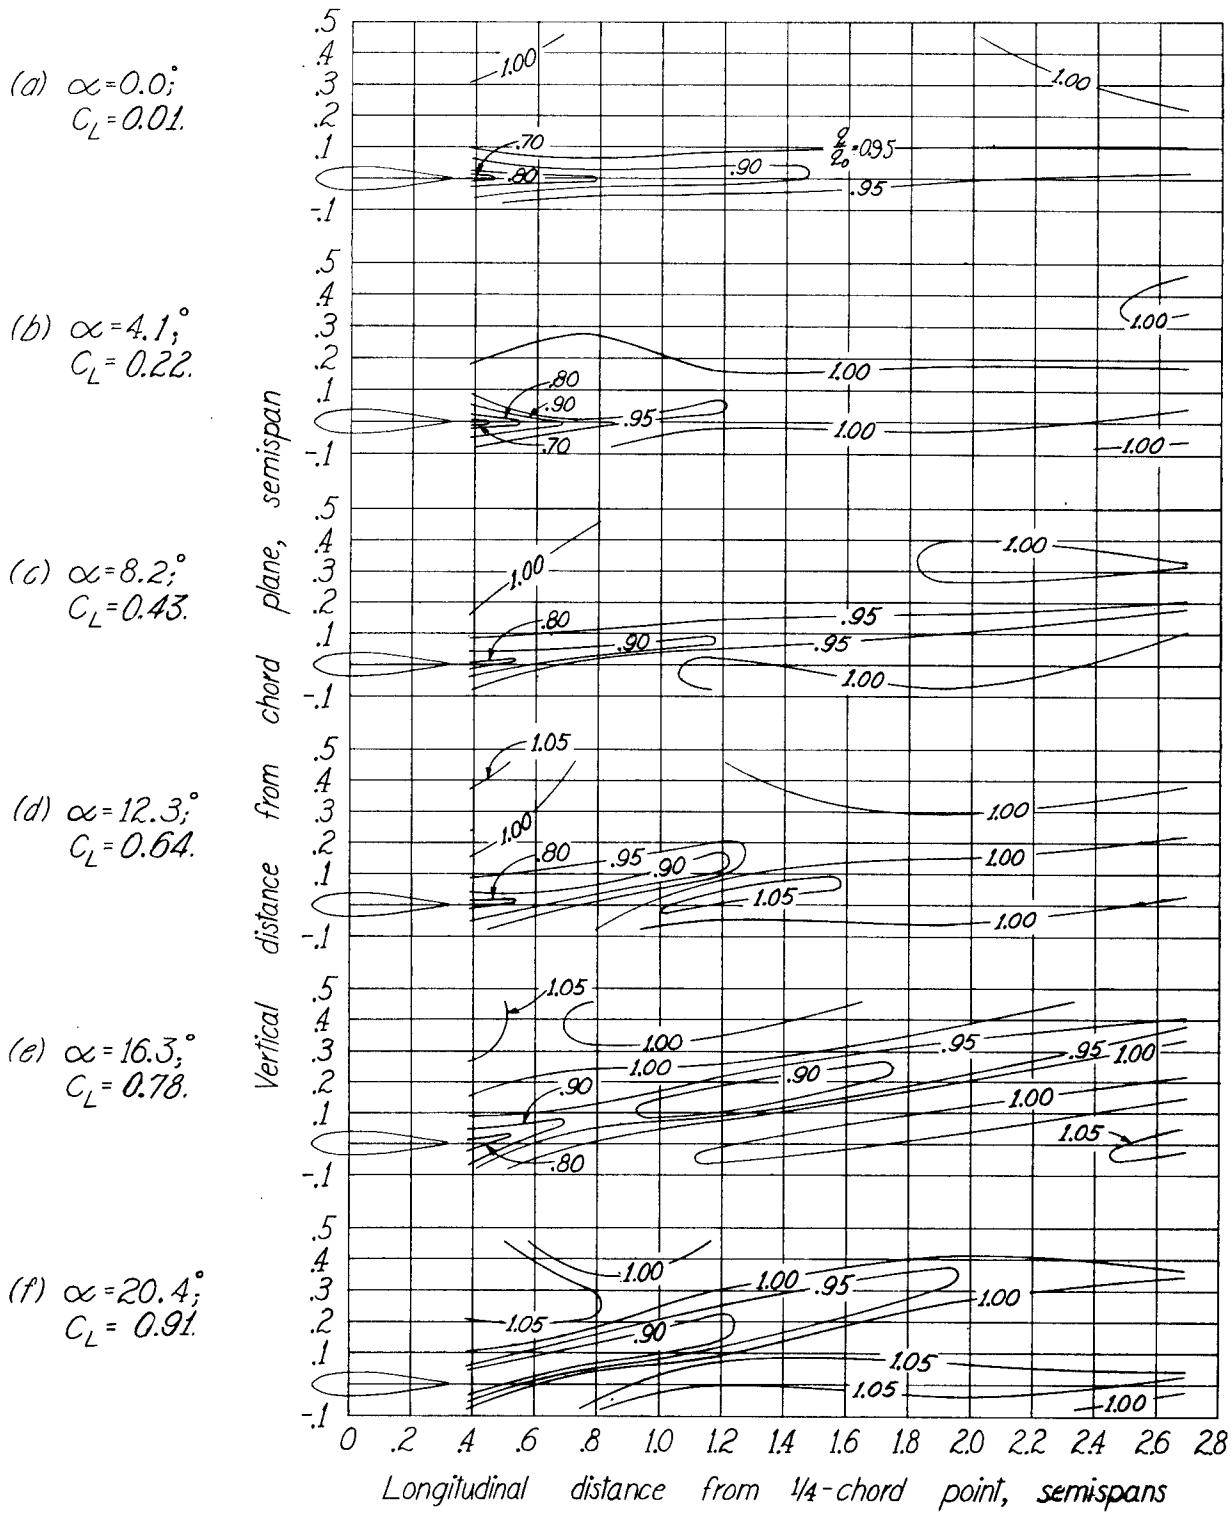 (a) α=0.0;°
C_L=0.01.
.5
.4
.3
.2
.1
0
-.1
1.00
1.00
.70
.80
.90
q/q₀=0.95
.95
(b) α=4.1;°
C_L=0.22.
.5
.4
.3
.2
.1
0
-.1
1.00
1.00
.80
.90
.95
.70
1.00
1.00
(c) α=8.2;°
C_L=0.43.
.5
.4
.3
.2
.1
0
-.1
1.00
1.00
.80
.90
.95
.95
1.00
(d) α=12.3;°
C_L=0.64.
.5
.4
.3
.2
.1
0
-.1
1.05
1.00
1.00
.80
.95
.90
1.00
1.05
1.00
(e) α=16.3;°
C_L=0.78.
.5
.4
.3
.2
.1
0
-.1
1.05
1.00
1.00
.95
.95
1.00
.90
.90
1.00
1.05
.80
(f) α=20.4;°
C_L=0.91.
.5
.4
.3
.2
.1
0
-.1
1.00
1.00
.95
1.00
1.05
.90
1.05
1.05
1.00
Vertical distance from chord plane, semispan
0 .2 .4 .6 .8 1.0 1.2 1.4 1.6 1.8 2.0 2.2 2.4 2.6 2.8
Longitudinal distance from 1/4-chord point, semispans